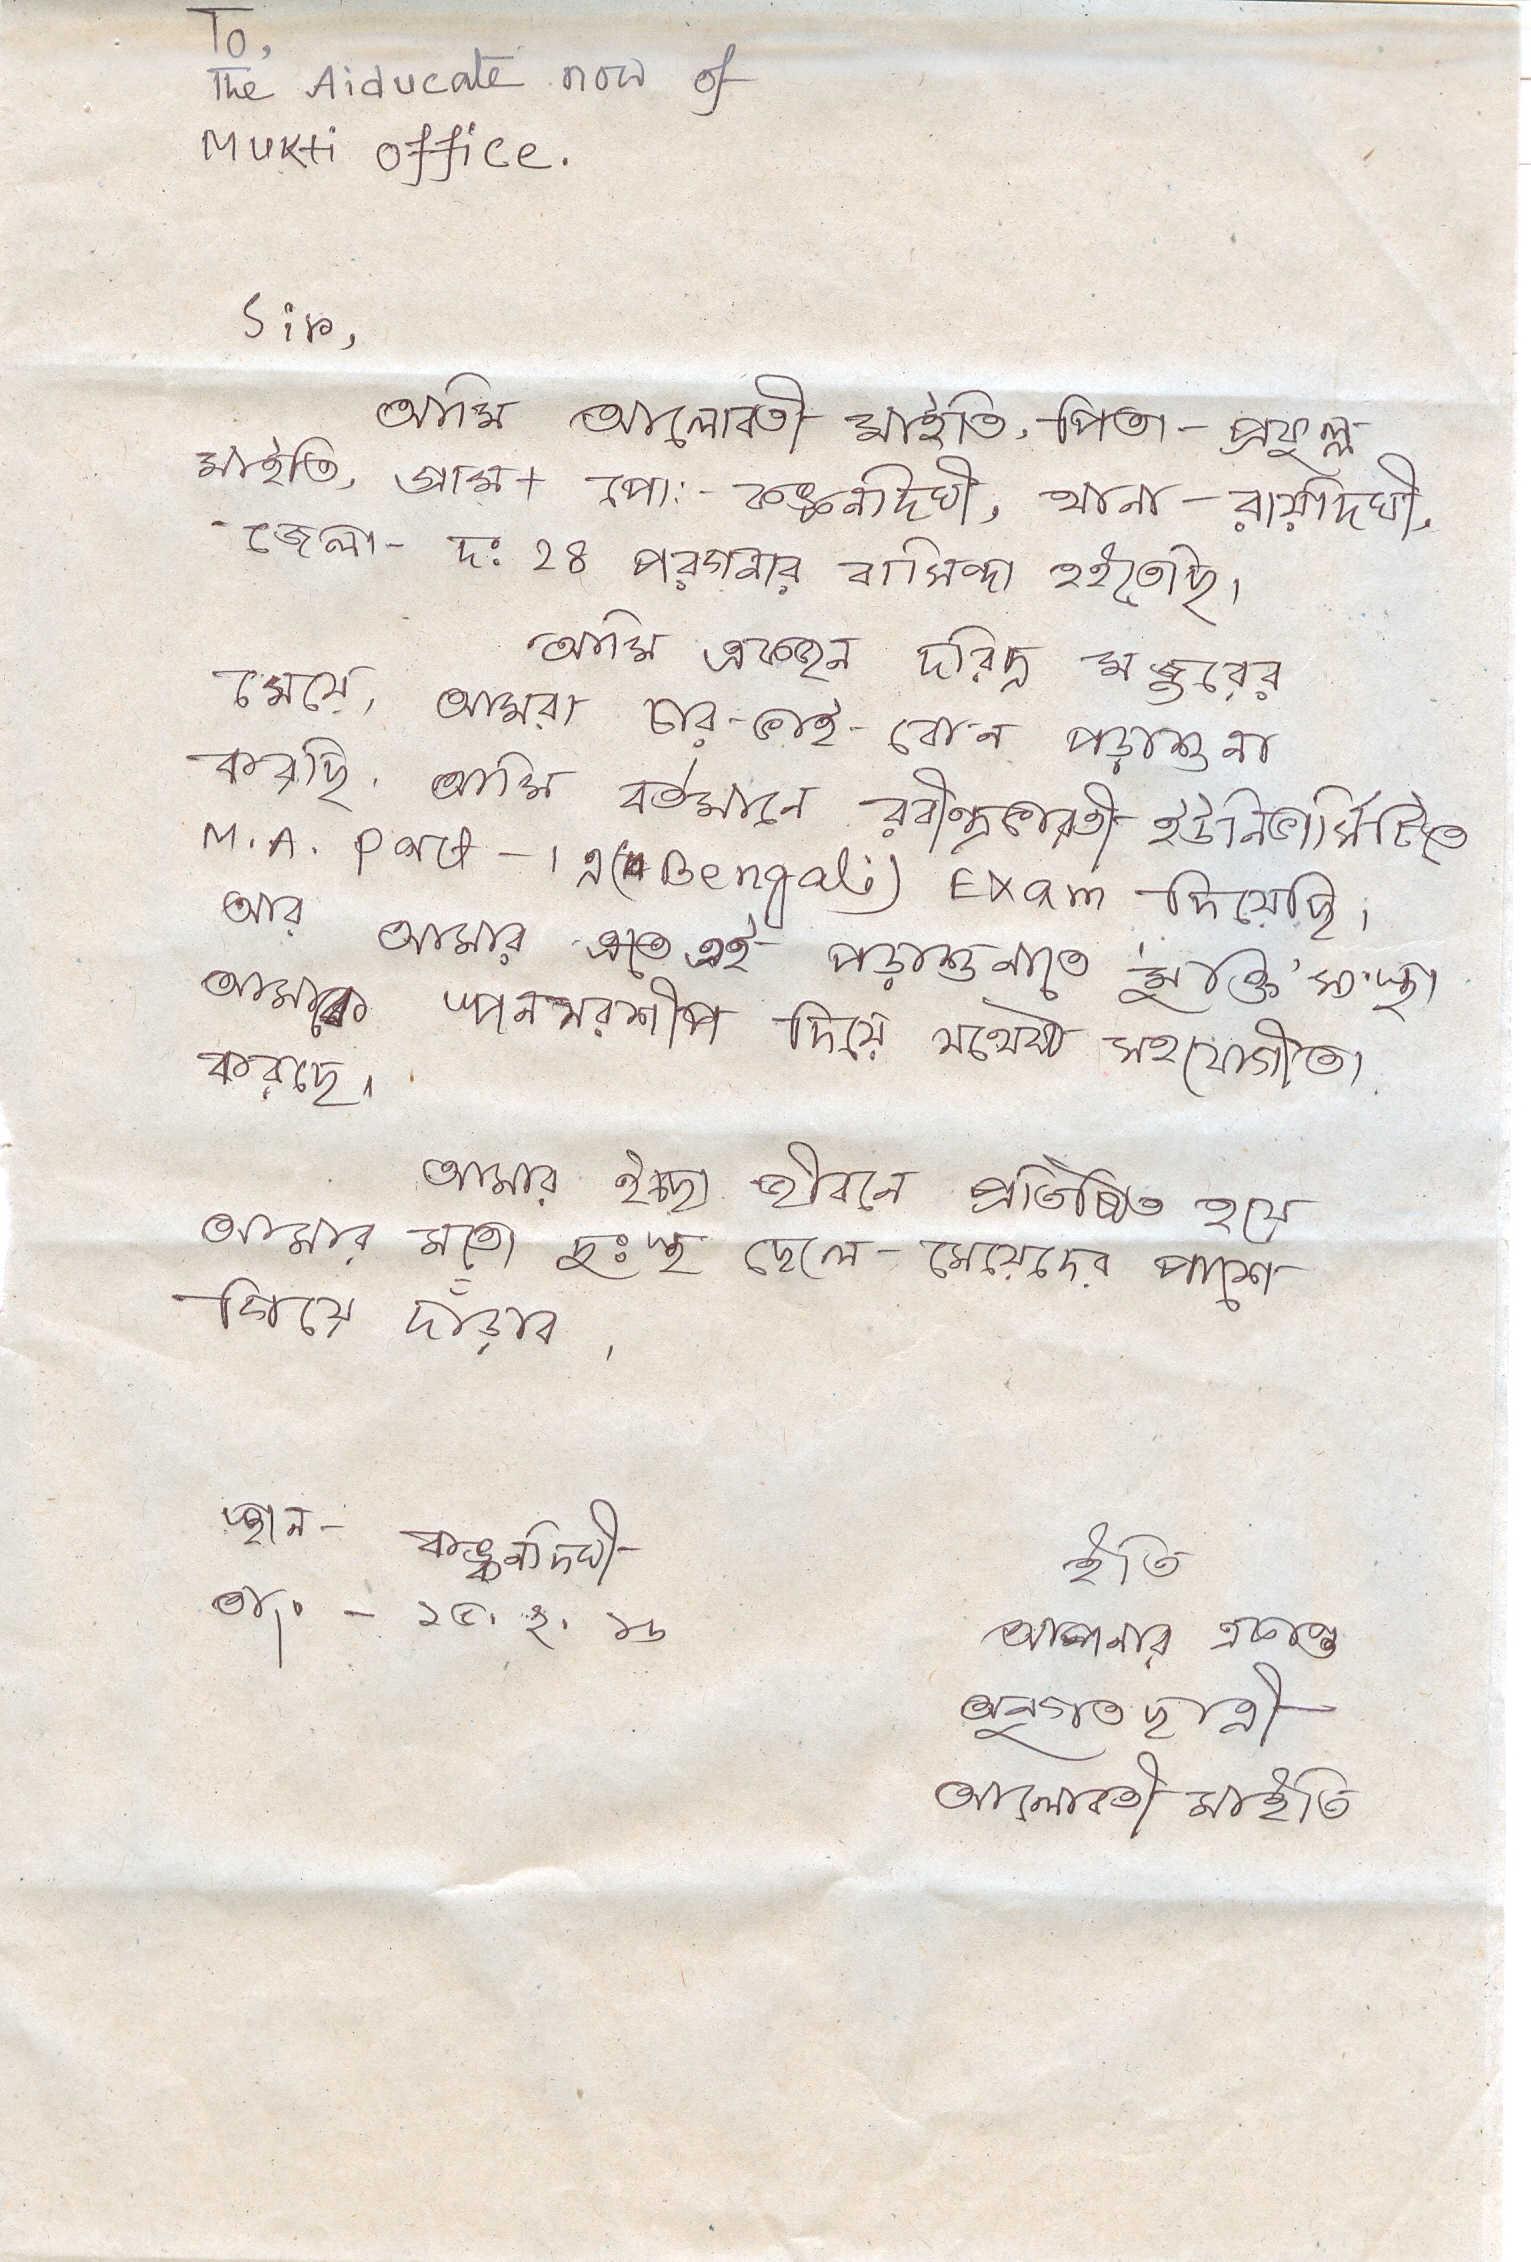 To,
The Aiducate now of
Mukti office.
Sir,
আমি আলোবতী মাইতি, পিতা - প্রফুল্ল
মাইতি, গ্রাম + পো: - কঙ্কনদিঘী, থানা - রায়দিঘী,
জেলা - দঃ 24 পরগনার বাসিন্দা হইতেছি।
আমি একজন দরিদ্র মজুরের
মেয়ে, আমরা চার-ভাই-বোন পড়াশুনা
করছি, আমি বর্তমানে রবীন্দ্রভারতী ইউনিভার্সিটিতে
M.A. Part - 1 এ (Bengali) Exam দিয়েছি।
আর আমার এতে এই পড়াশুনাতে 'মুক্তি' সংস্থা
আমাকে স্পনসরশীপ দিয়ে যথেষ্ট সহযোগীতা
করছে।
আমার ইচ্ছা জীবনে প্রতিষ্ঠিত হয়ে
আমার মতো দুঃস্থ ছেলে-মেয়েদের পাশে
গিয়ে দাঁড়াব।
স্থান - কঙ্কনদিঘী
তাং - ১৫. ২. ১৬
ইতি
আপনার একান্ত
অনুগত ছাত্রী
আলোবতী মাইতি